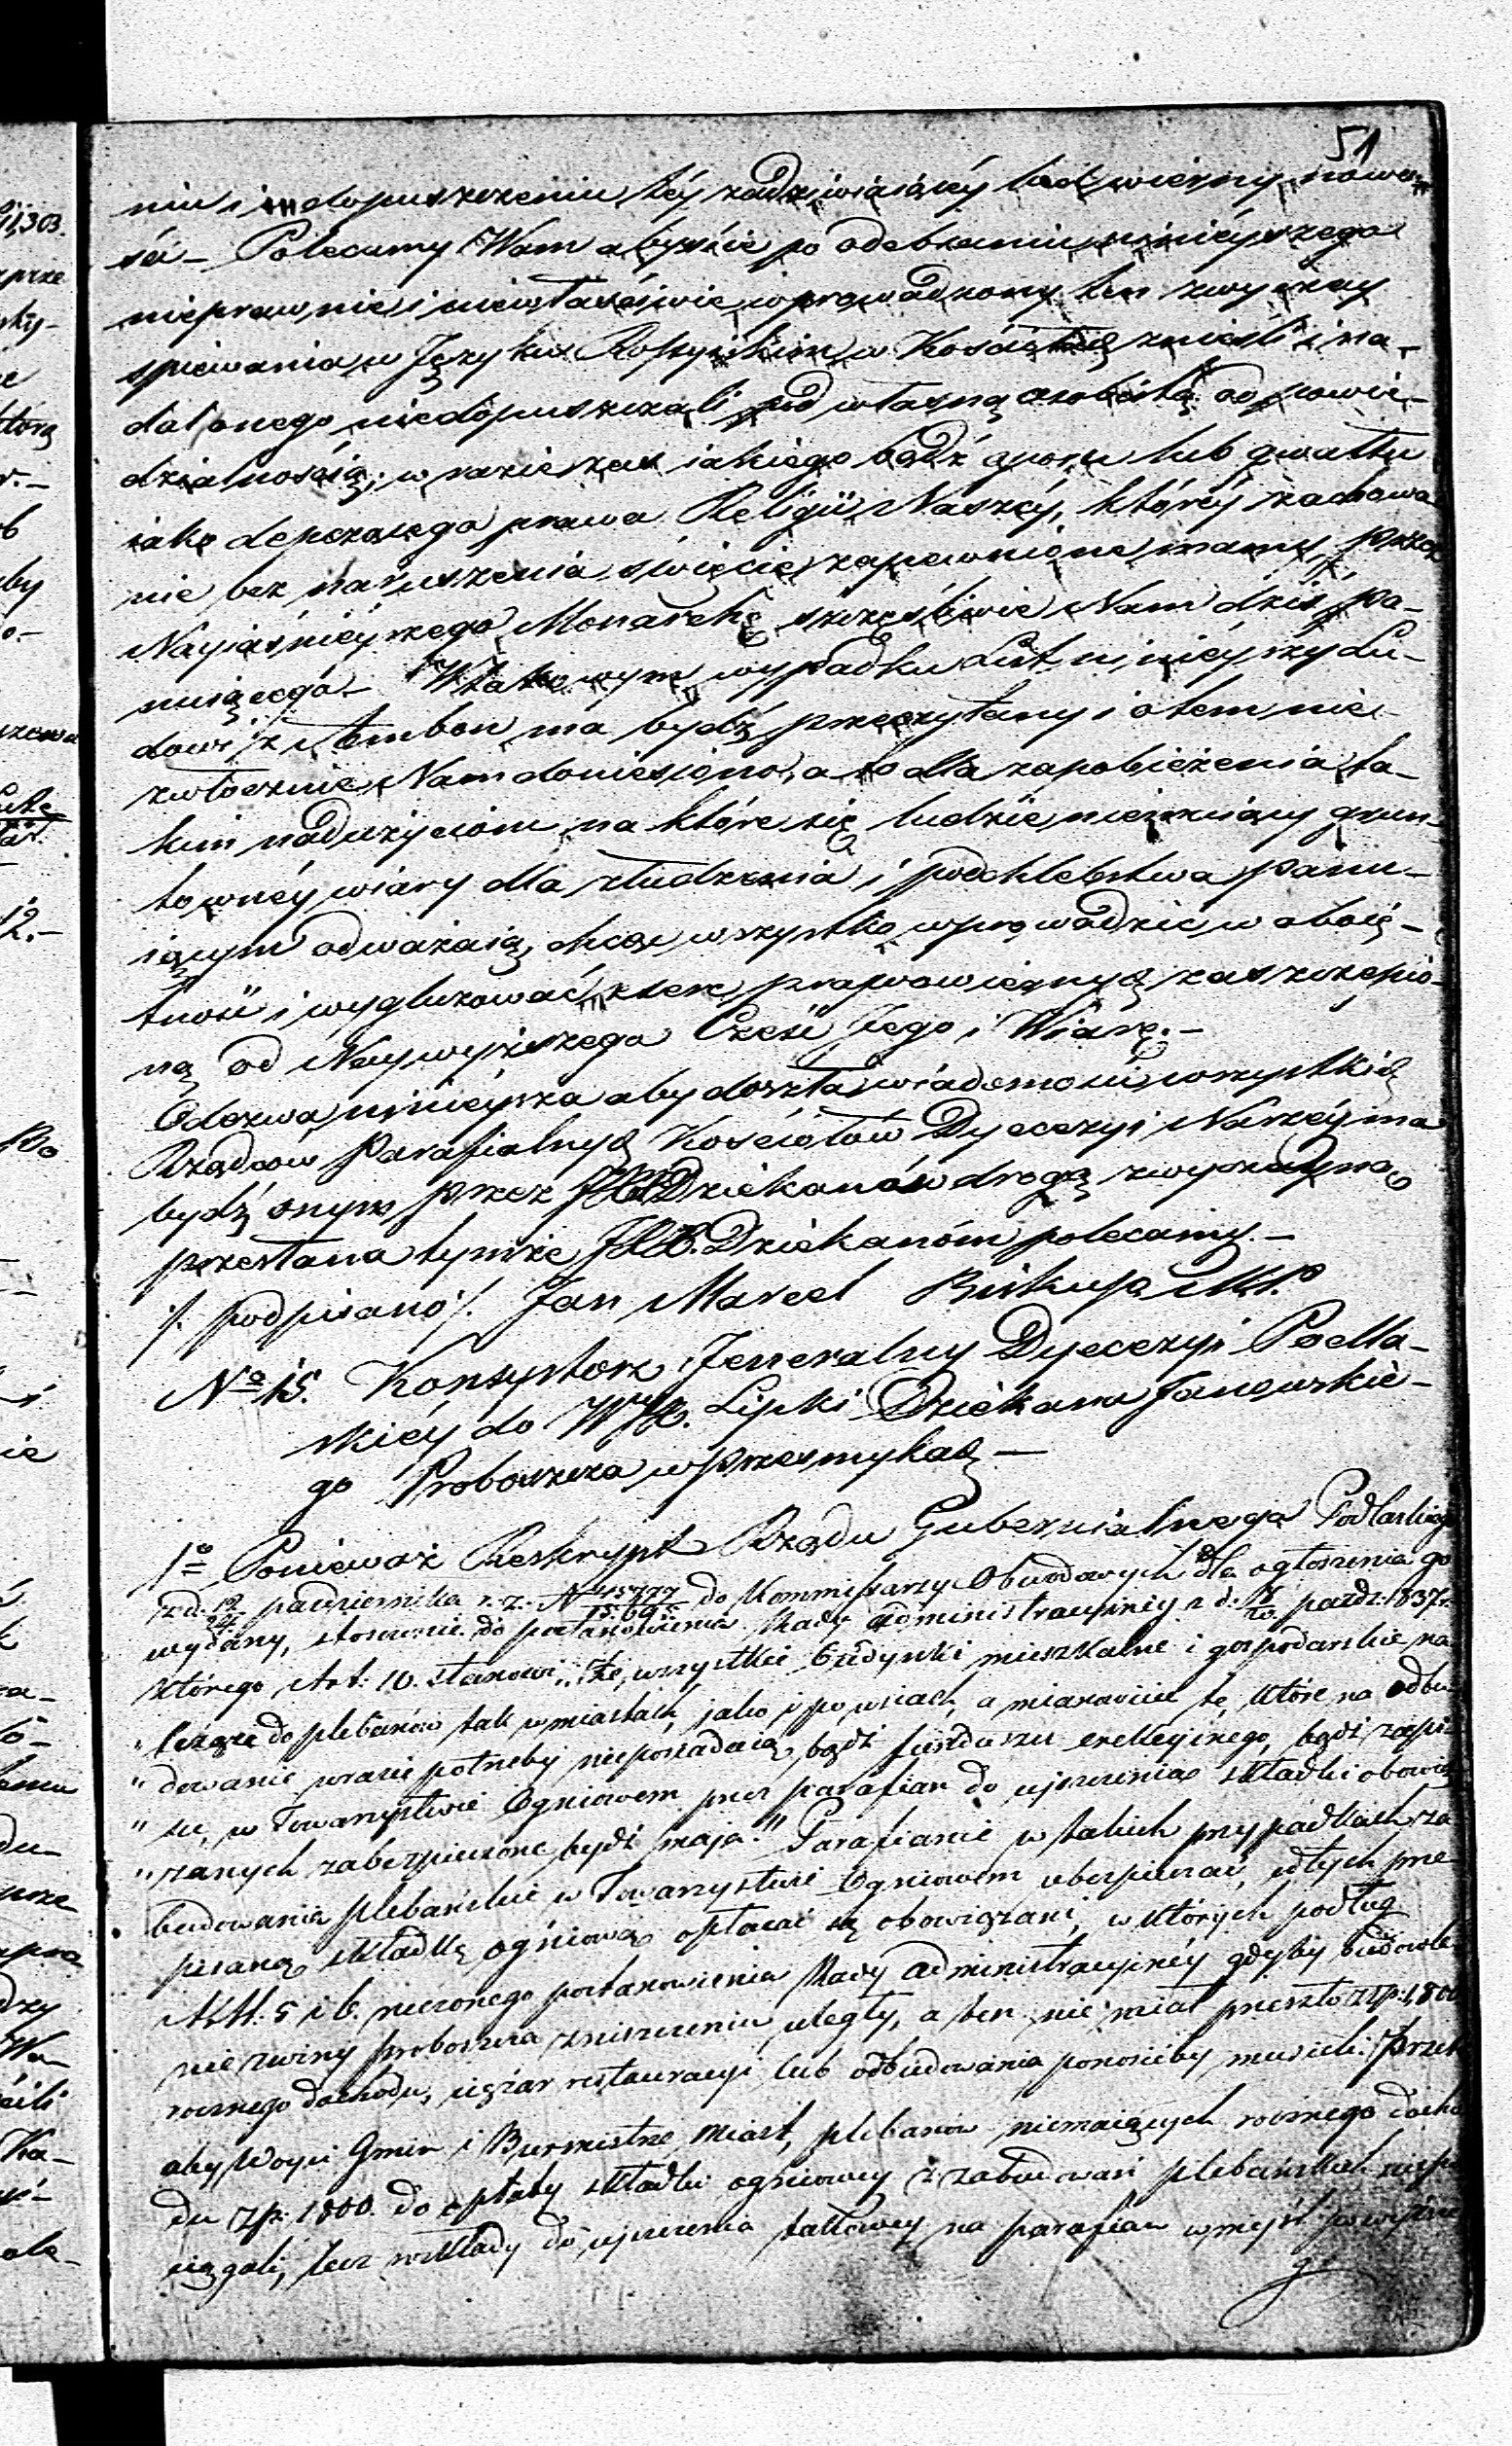 51
niu i dopuszczeniu téy zadziwiaiąéy lud wierny nowo-
ści – Polecamy Wam abyście po odebraniu ninieyszego
nieprawnie i niewłaściwie wprowadzony ten zwyczay
spiewania w Języku Rossyiskim w Kościele znieśli i na-
dal onego niedopuszczali pod własną osobistą odpowie-
dzialnością; w razie zaś iakiego bądź oporu lub gwałtu
iako depczącego prawa Religii Naszéy, któréy zachowa
nie bez naruszenia święcie zapewnione mamy, przez
Nayiaśnieyszego Monarchę szczęśliwie Nam dziś pa-
nuiącego – W takowym wypadku List ninieyszy Lu-
dowi z Ambon ma bydź przeczytany i o tem nie-
zwłocznie Nam doniesiono, a to dla zapobieżenia ta-
kim nadużyciom na które się ludzie nieznaiący grun-
townéy wiary dla złudzenia i podchlebstwa panu-
iącym odważaią, chcąc wszystko wprowadzić w oboię-
tność i wygluzować z serc prawowiernych zaszczepio-
ną od Naywyższego Cześć Jego i Wiarę. –
Odezwa ninieysza aby doszła wiadomości wszystkich
Rządców Parafialnych Kościołów Dyecezyi Naszéy ma
bydź onym przez JXX Dziekanów drogą zwyczayną
przesłana tymże JXX. Dziekanóm polecamy. –
/. podpisano /. Jan Marcel Biskup MP.
No 15. Konsystorz Jeneralny Dyecezyi Podla-
skiéy do WJX. Lipki Dziekana Janowskie-
go Proboszcza w Przesmykach –
1o Ponieważ Reskrypt Rządu Gubernialnego Podlaskiego
z d. 12/24 października r. z. N 45777/15.691 do Kommissarzy Obwodowych dla ogłoszenia go
wydany, stosownie do postanowienia Rady Administracyinéy z d: /20. pazdz: 1837 r.
którego Art: 10. stanowi: „że, wszystkie budynki mieszkalne i gospodarskie na-
„ leżące do plebanów tak w miastach, jako i po wsiach, a mianowicie te, które na odbu-
„ dowanie w razie potrzeby nieposiadaią, bądź funduszu erekcyinego, bądź zapi-
„ su, w Towarzystwie Ogniowem przez parafian do uiszczenia składki obowią-
„ zanych zabezpieczone bydź maią." Parafianie w takich przypadkach za-
budowania plebańskie w Towarzystwie Ogniowem ubezpieczać, i od tych prze-
pisaną składkę ogniową opłacać są obowiązani, w których podług
Art: 5 i 6. rzeczonego postanowienia Rady Administracyinéy gdyby budowle
nie z winy proboszcza zniszczeniu uległy, a ten nie miał przeszło złp: 1,800
rocznego dochodu, ciężar restauracyi lub odbudowania ponosićby musieli: przeto
aby Woyci Gmin i Burmistrze Miast, plebanów niemaiących rocznego docho-
du złp: 1800. do opłaty składki ogniowey z zabudowań plebańskich niepo-
ciągali, lecz rozkłady do uiszczenia takowey na parafian w myśl powyższe
go